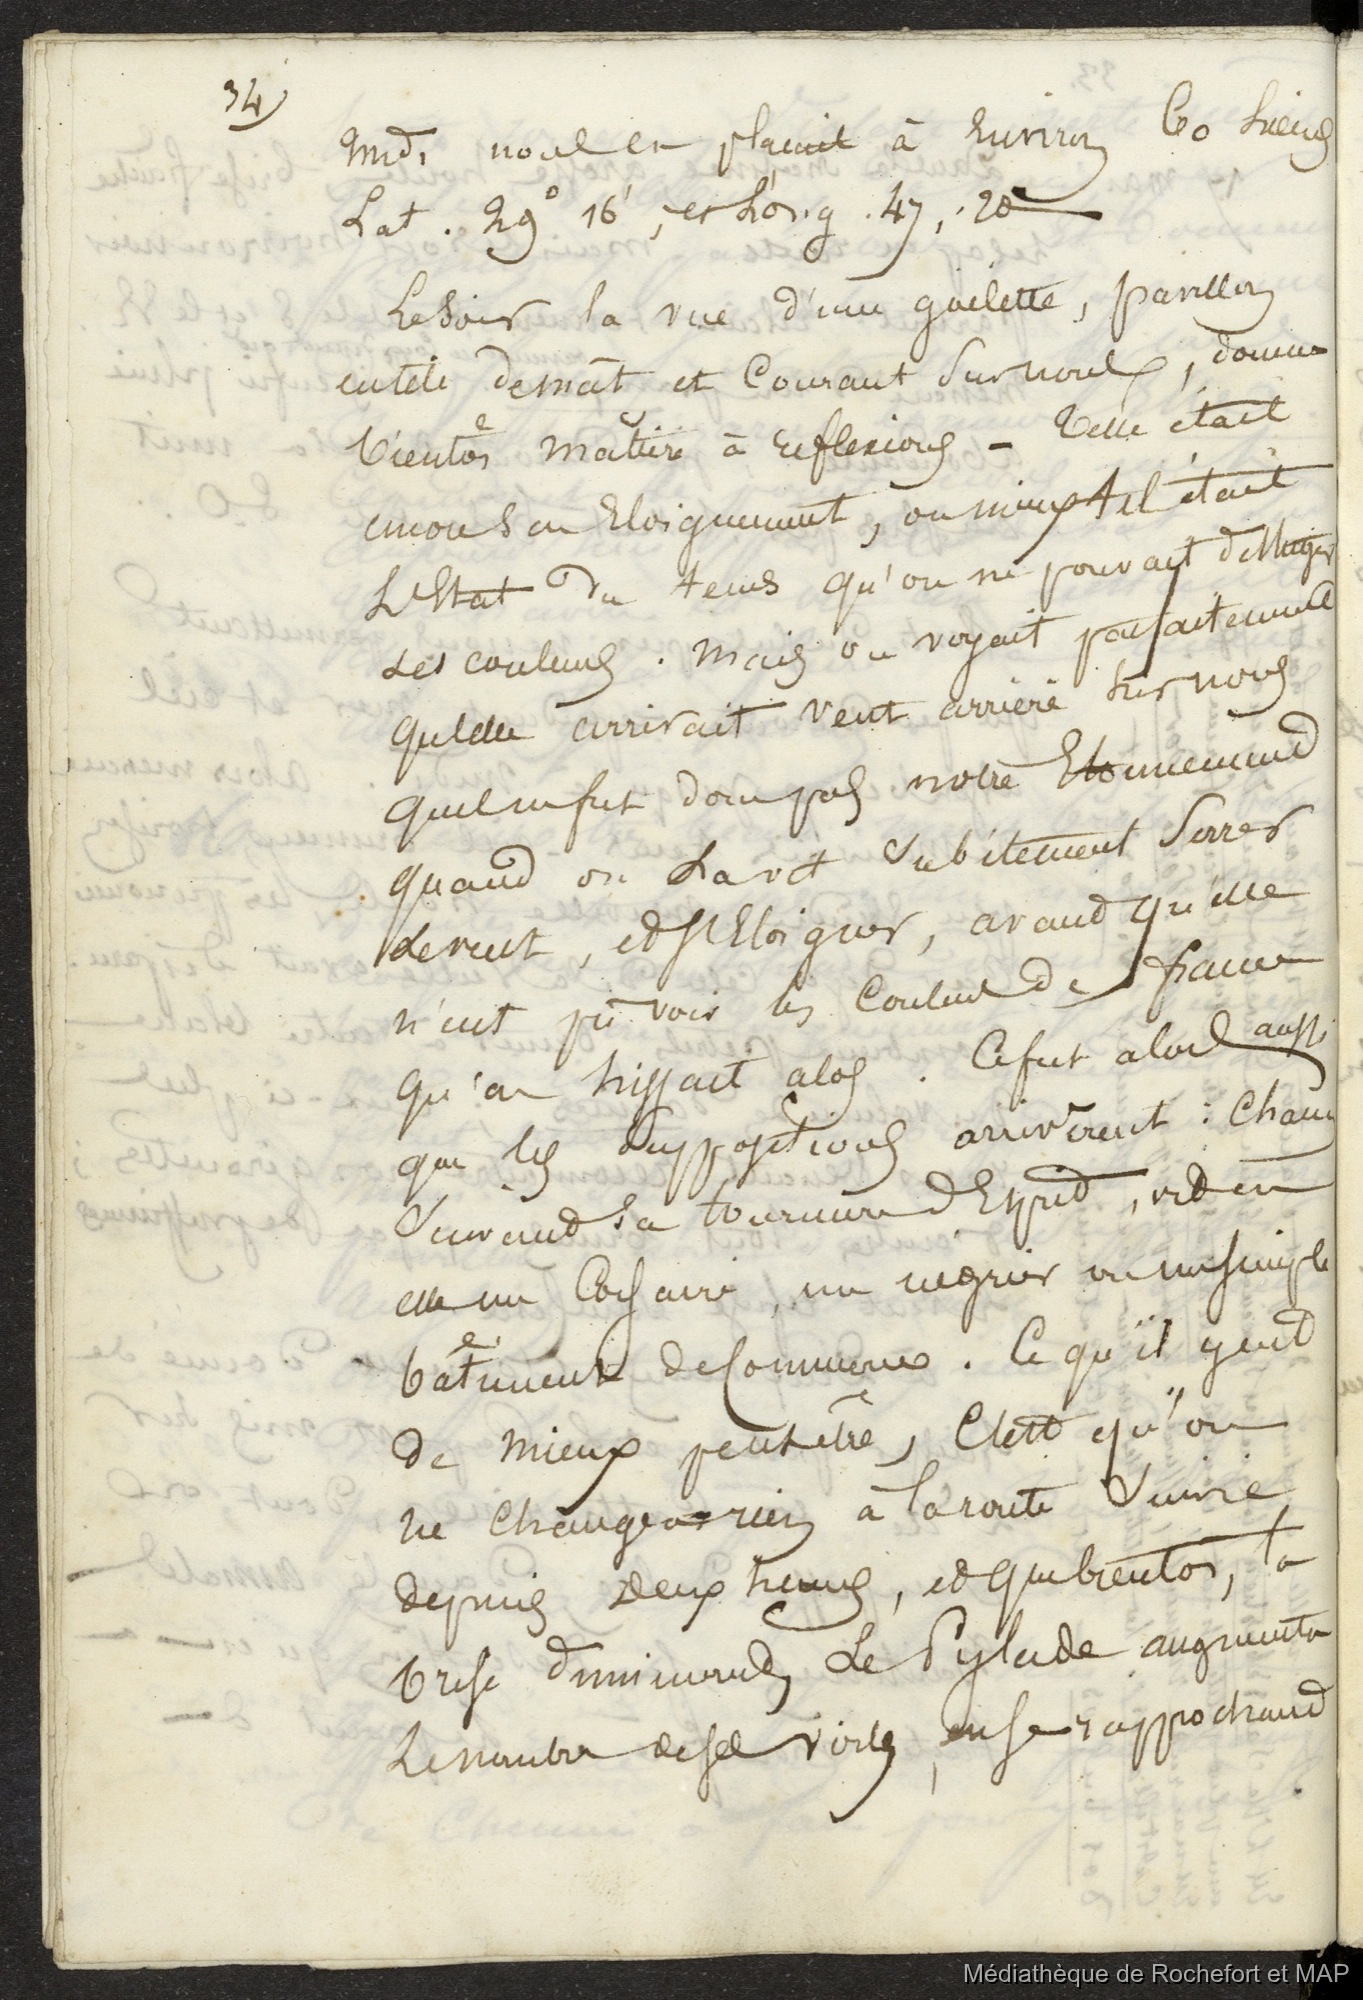 34)
Midi nous en plaçait à Environ 60 lieues
Lat. 29° 16', et Long. 47, 20
Le Soir la vue d'une goëlette, pavillon
en tête de mât et Courant Sur nous, donna
bientôt matière à reflexions - Telle était
encore Son Eloignement, ou mieux tel était
L'Etat du tems qu'on ne pouvait distinguer
Les couleurs. Mais on voyait parfaitement
qu'elle arrivait vent arrière Sur nous
quel ne fut donc pas notre Etonnement
quand on La vit Subitement Serrer
Le vent, et S'Eloigner, avant qu'elle
n'eut pû voir les Couleurs de france
qu'on hissait alors. Ce fut alors aussi
que les suppositions arrivèrent : Chacun
Suivant Sa tournure d'Esprit, vit en
elle un Corsaire, un négrier ou un Simple
bâtiment de Commerce. Ce qu'il y eut
de mieux peut être, C'est qu'on
ne changea rien à la route Suivie
depuis deux heures, et que bientot, la
brise diminuant, Le Pylade augmenta
Le nombre de ses voiles, en se rapprochant
Médiathèque de Rochefort et MAP